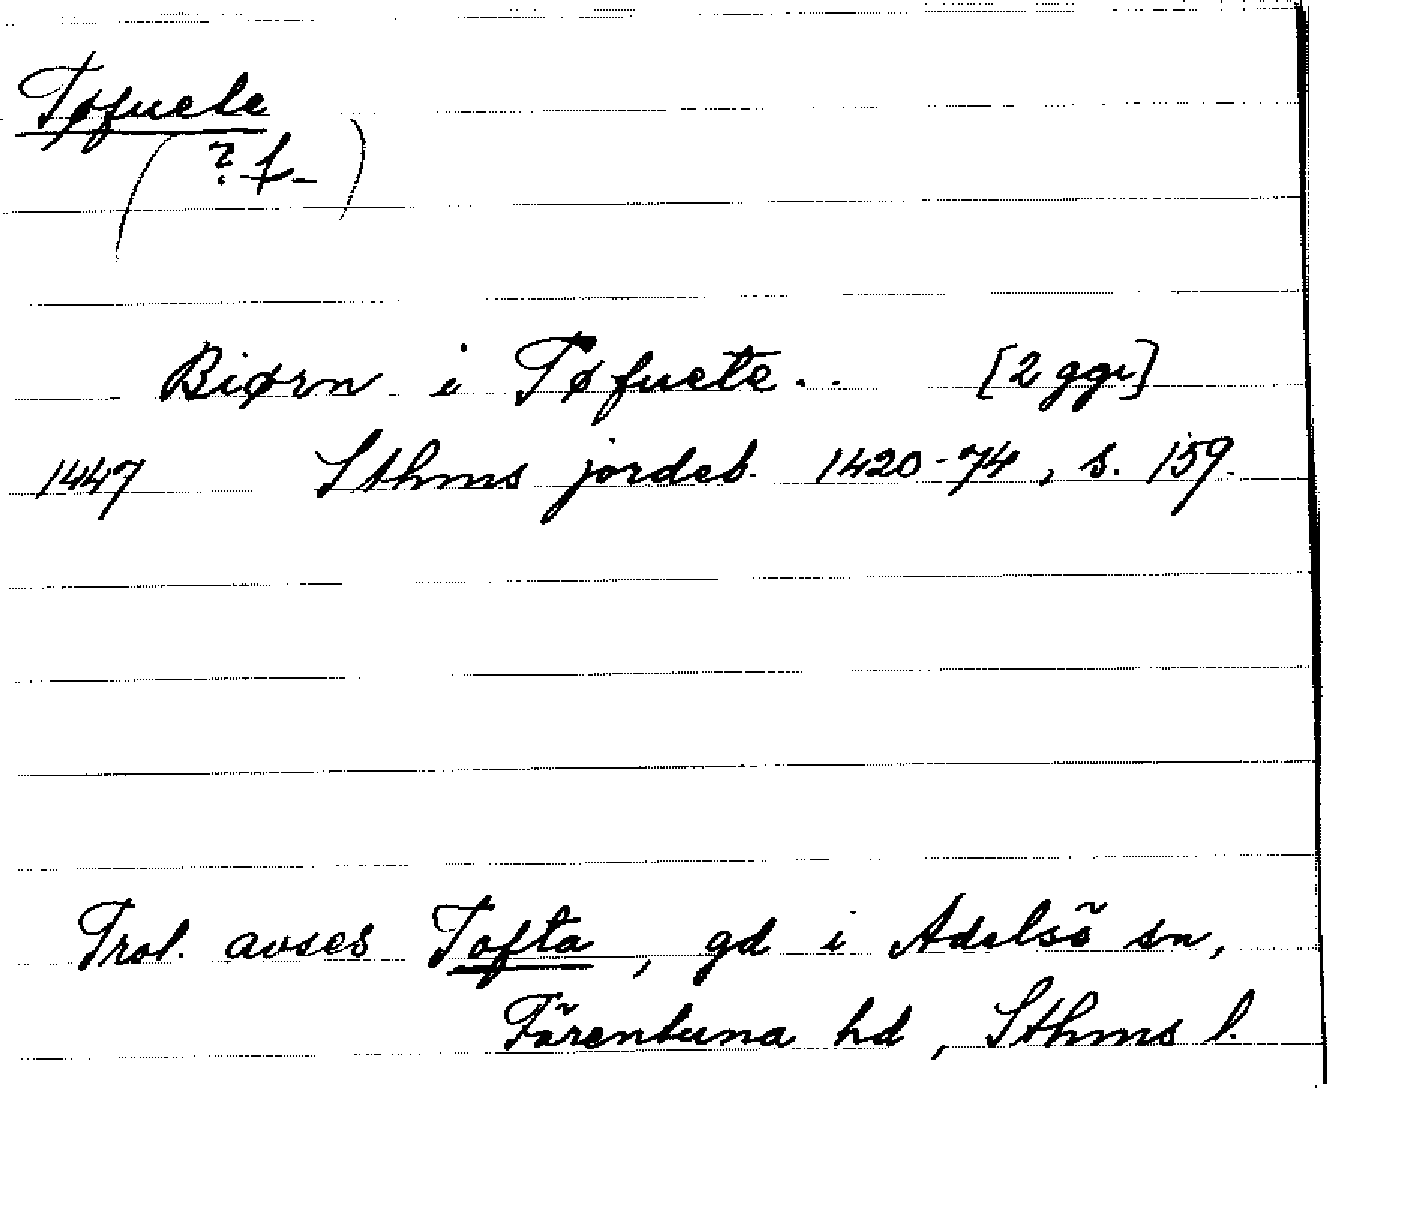 Tøfuete
(? f-)
Biørn i Tøfuete . . [2 ggr]
1447 Sthms jordeb. 1420-74, s. 159.
Trol. avses Tofta, gd i Adelsö sn,
Färentuna hd, Sthms l.